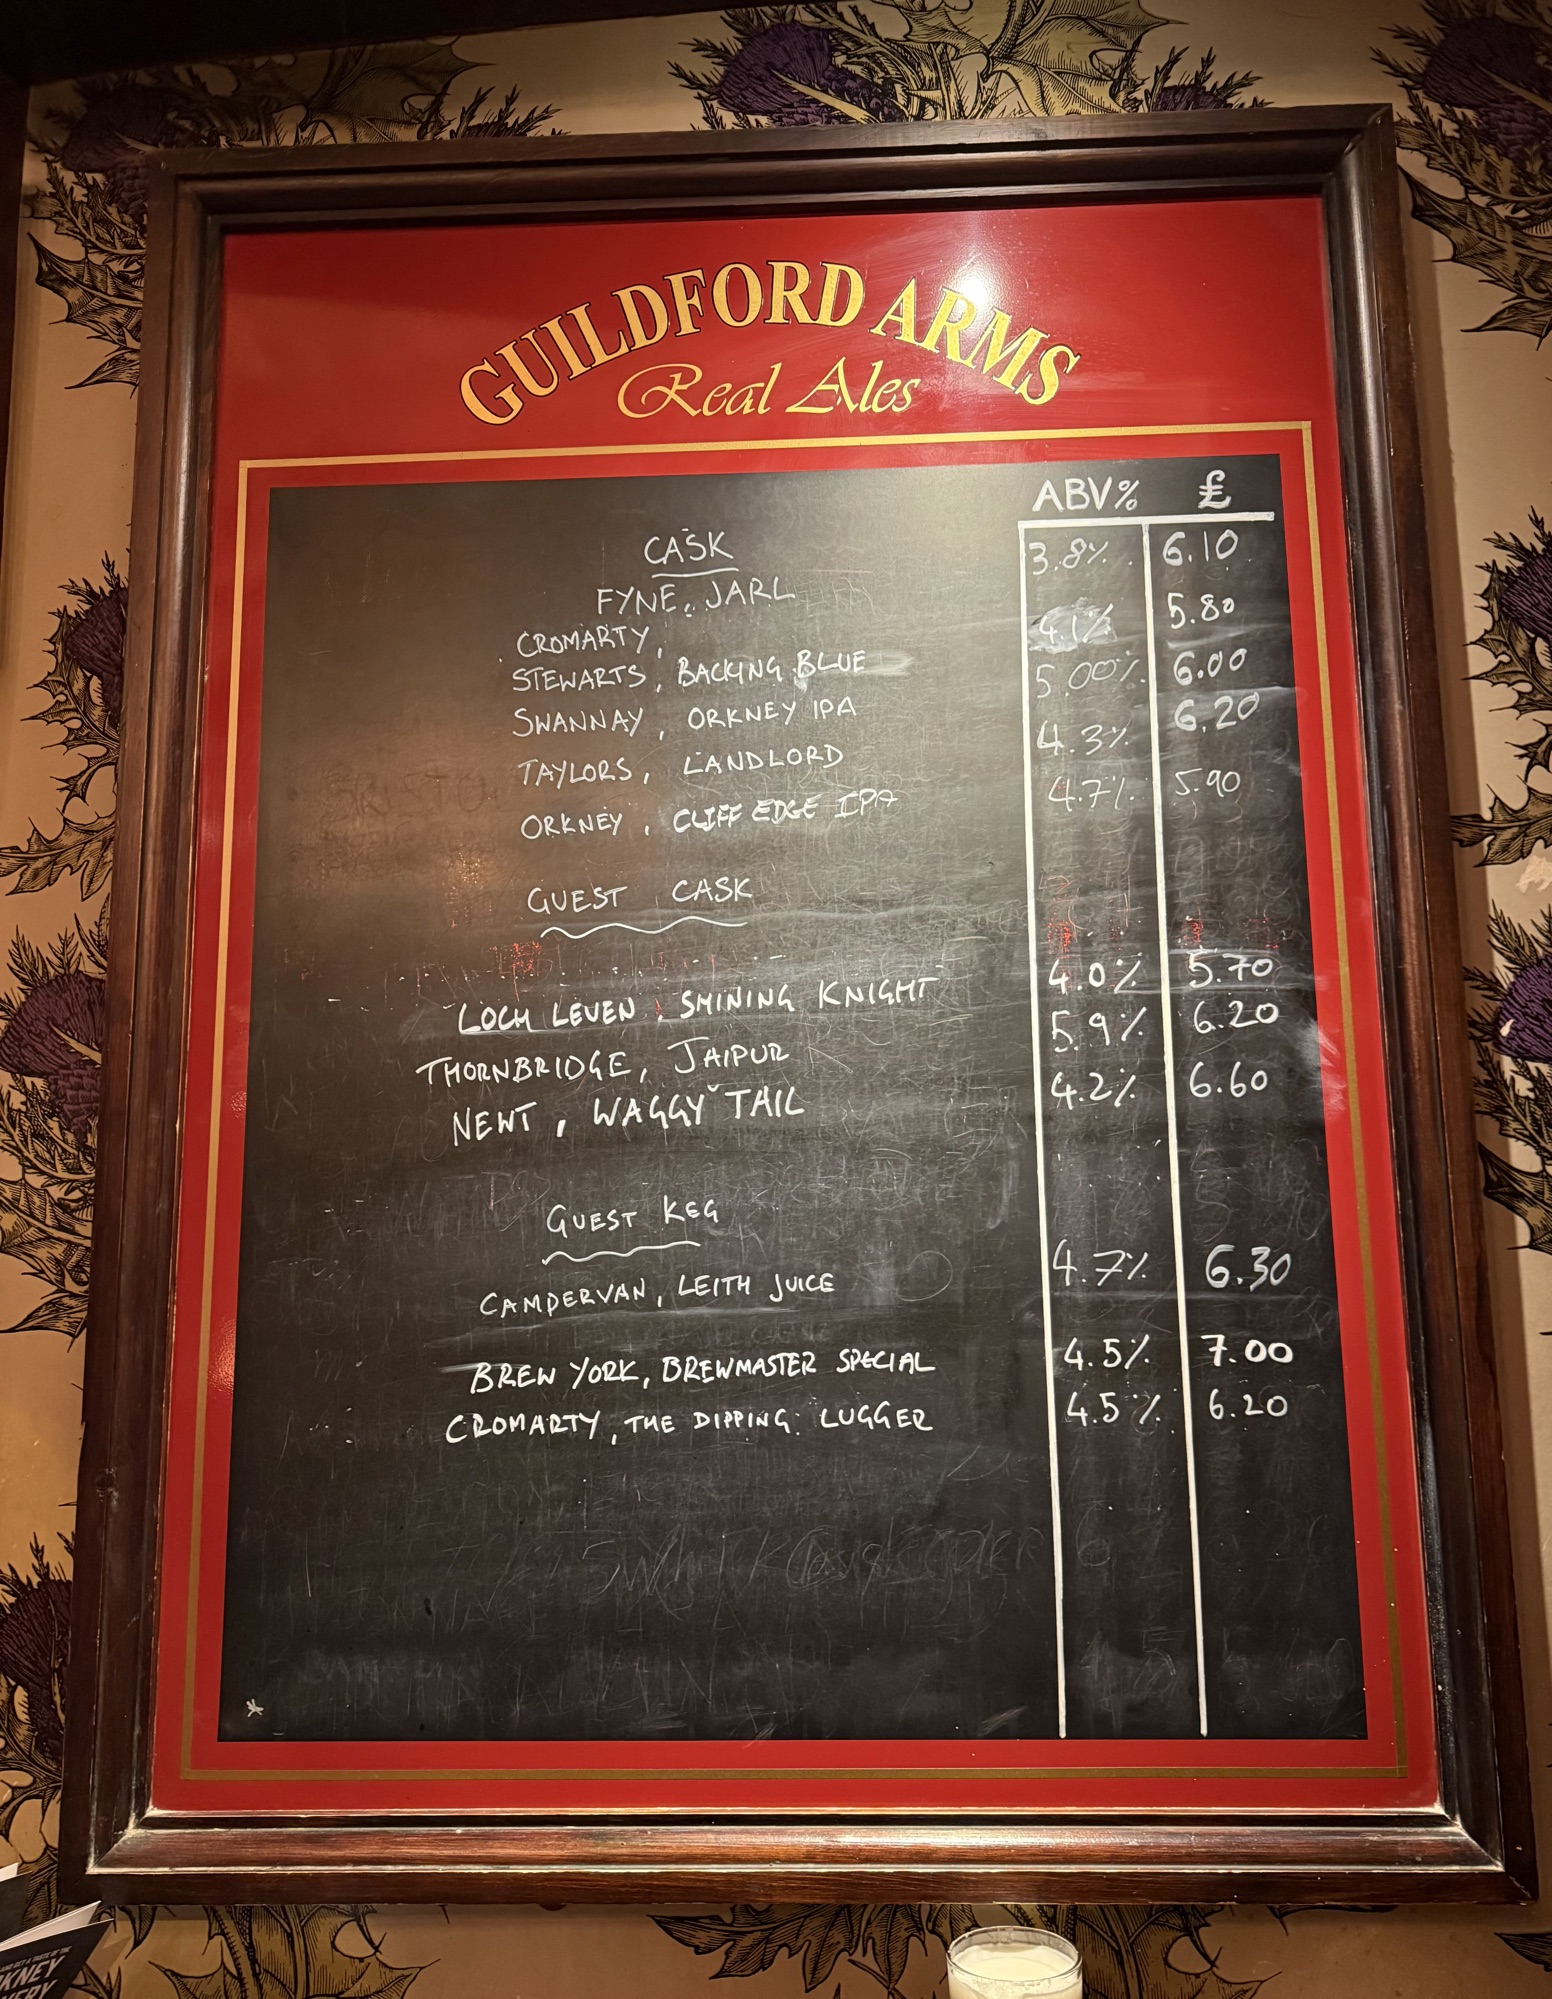 GUILDFORD ARMS
Real Ales
ABV% £
CASK
FYNE, JARL 3.8% 6.10
CROMARTY,
STEWARTS, BACKING BLUE 4.1% 5.80
SWANNAY, ORKNEY IPA 5.00% 6.00
TAYLORS, LANDLORD 4.3% 6.20
ORKNEY, CLIFF EDGE IPA 4.7% 5.90
GUEST CASK
LOCH LEVEN, SHINING KNIGHT 4.0% 5.70
THORNBRIDGE, JAIPUR 5.9% 6.20
NEWT, WAGGY TAIL 4.2% 6.60
GUEST KEG
CAMPERVAN, LEITH JUICE 4.7% 6.30
BREW YORK, BREWMASTER SPECIAL 4.5% 7.00
CROMARTY, THE DIPPING LUGGER 4.5% 6.20